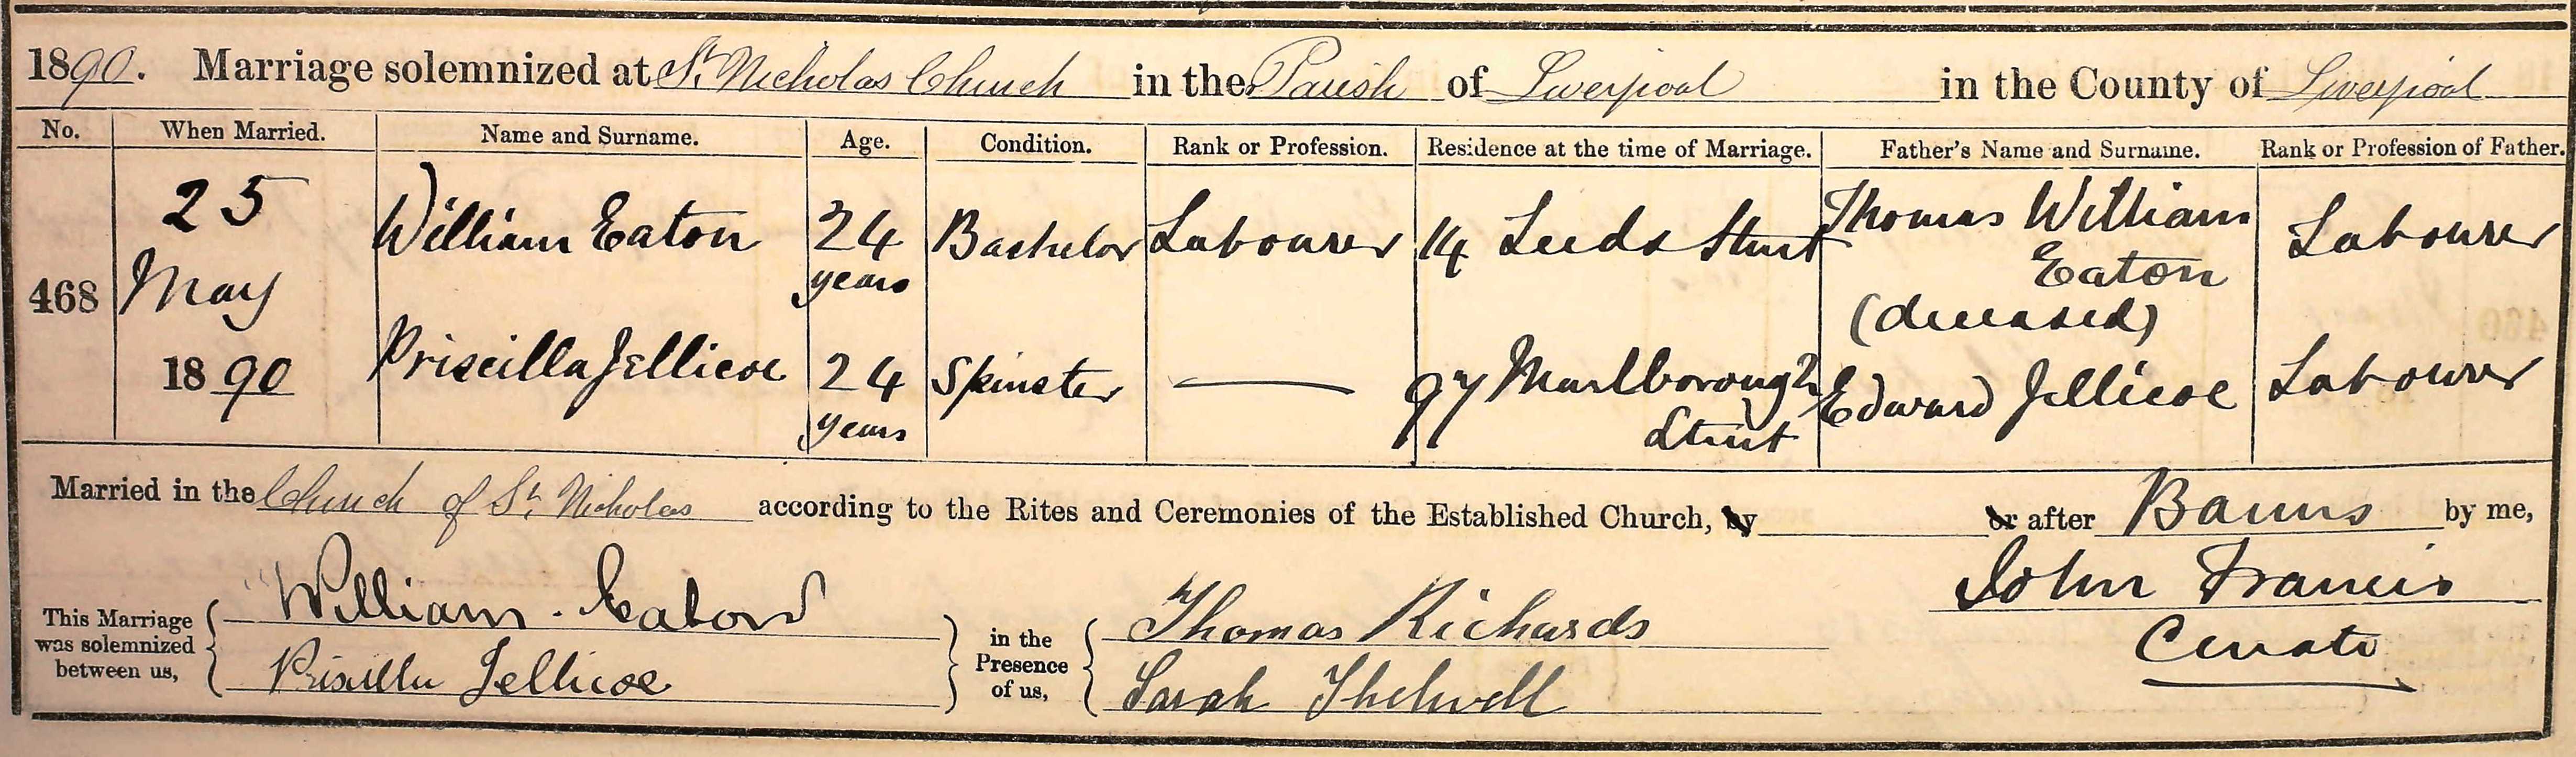 1890. Marriage solemnized at St. Nicholas Church in the Parish of Liverpool in the County of Liverpool
No. When Married. Name and Surname. Age. Condition. Rank or Profession. Residence at the time of Marriage. Father's Name and Surname. Rank or Profession of Father.
468 25 May 1890
William Eaton 24 years Bachelor Labourer 14 Leeds Street Thomas William Eaton (deceased) Labourer
Priscilla Jellicoe 24 years Spinster — 97 Marlborough Street Edward Jellicoe Labourer
Married in the Church of St. Nicholas according to the Rites and Ceremonies of the Established Church, by or after Banns by me,
John Francis
Curate
This Marriage was solemnized between us, William Eaton Priscilla Jellicoe
in the Presence of us, Thomas Richards Sarah Thelwell